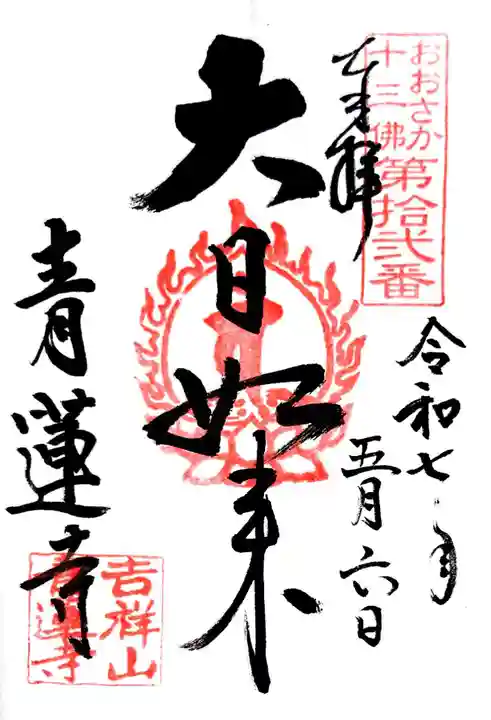 おおさか
十三佛
第拾弐番
奉拝
令和七年
五月六日
大日如来
青蓮寺
吉祥山
青蓮寺